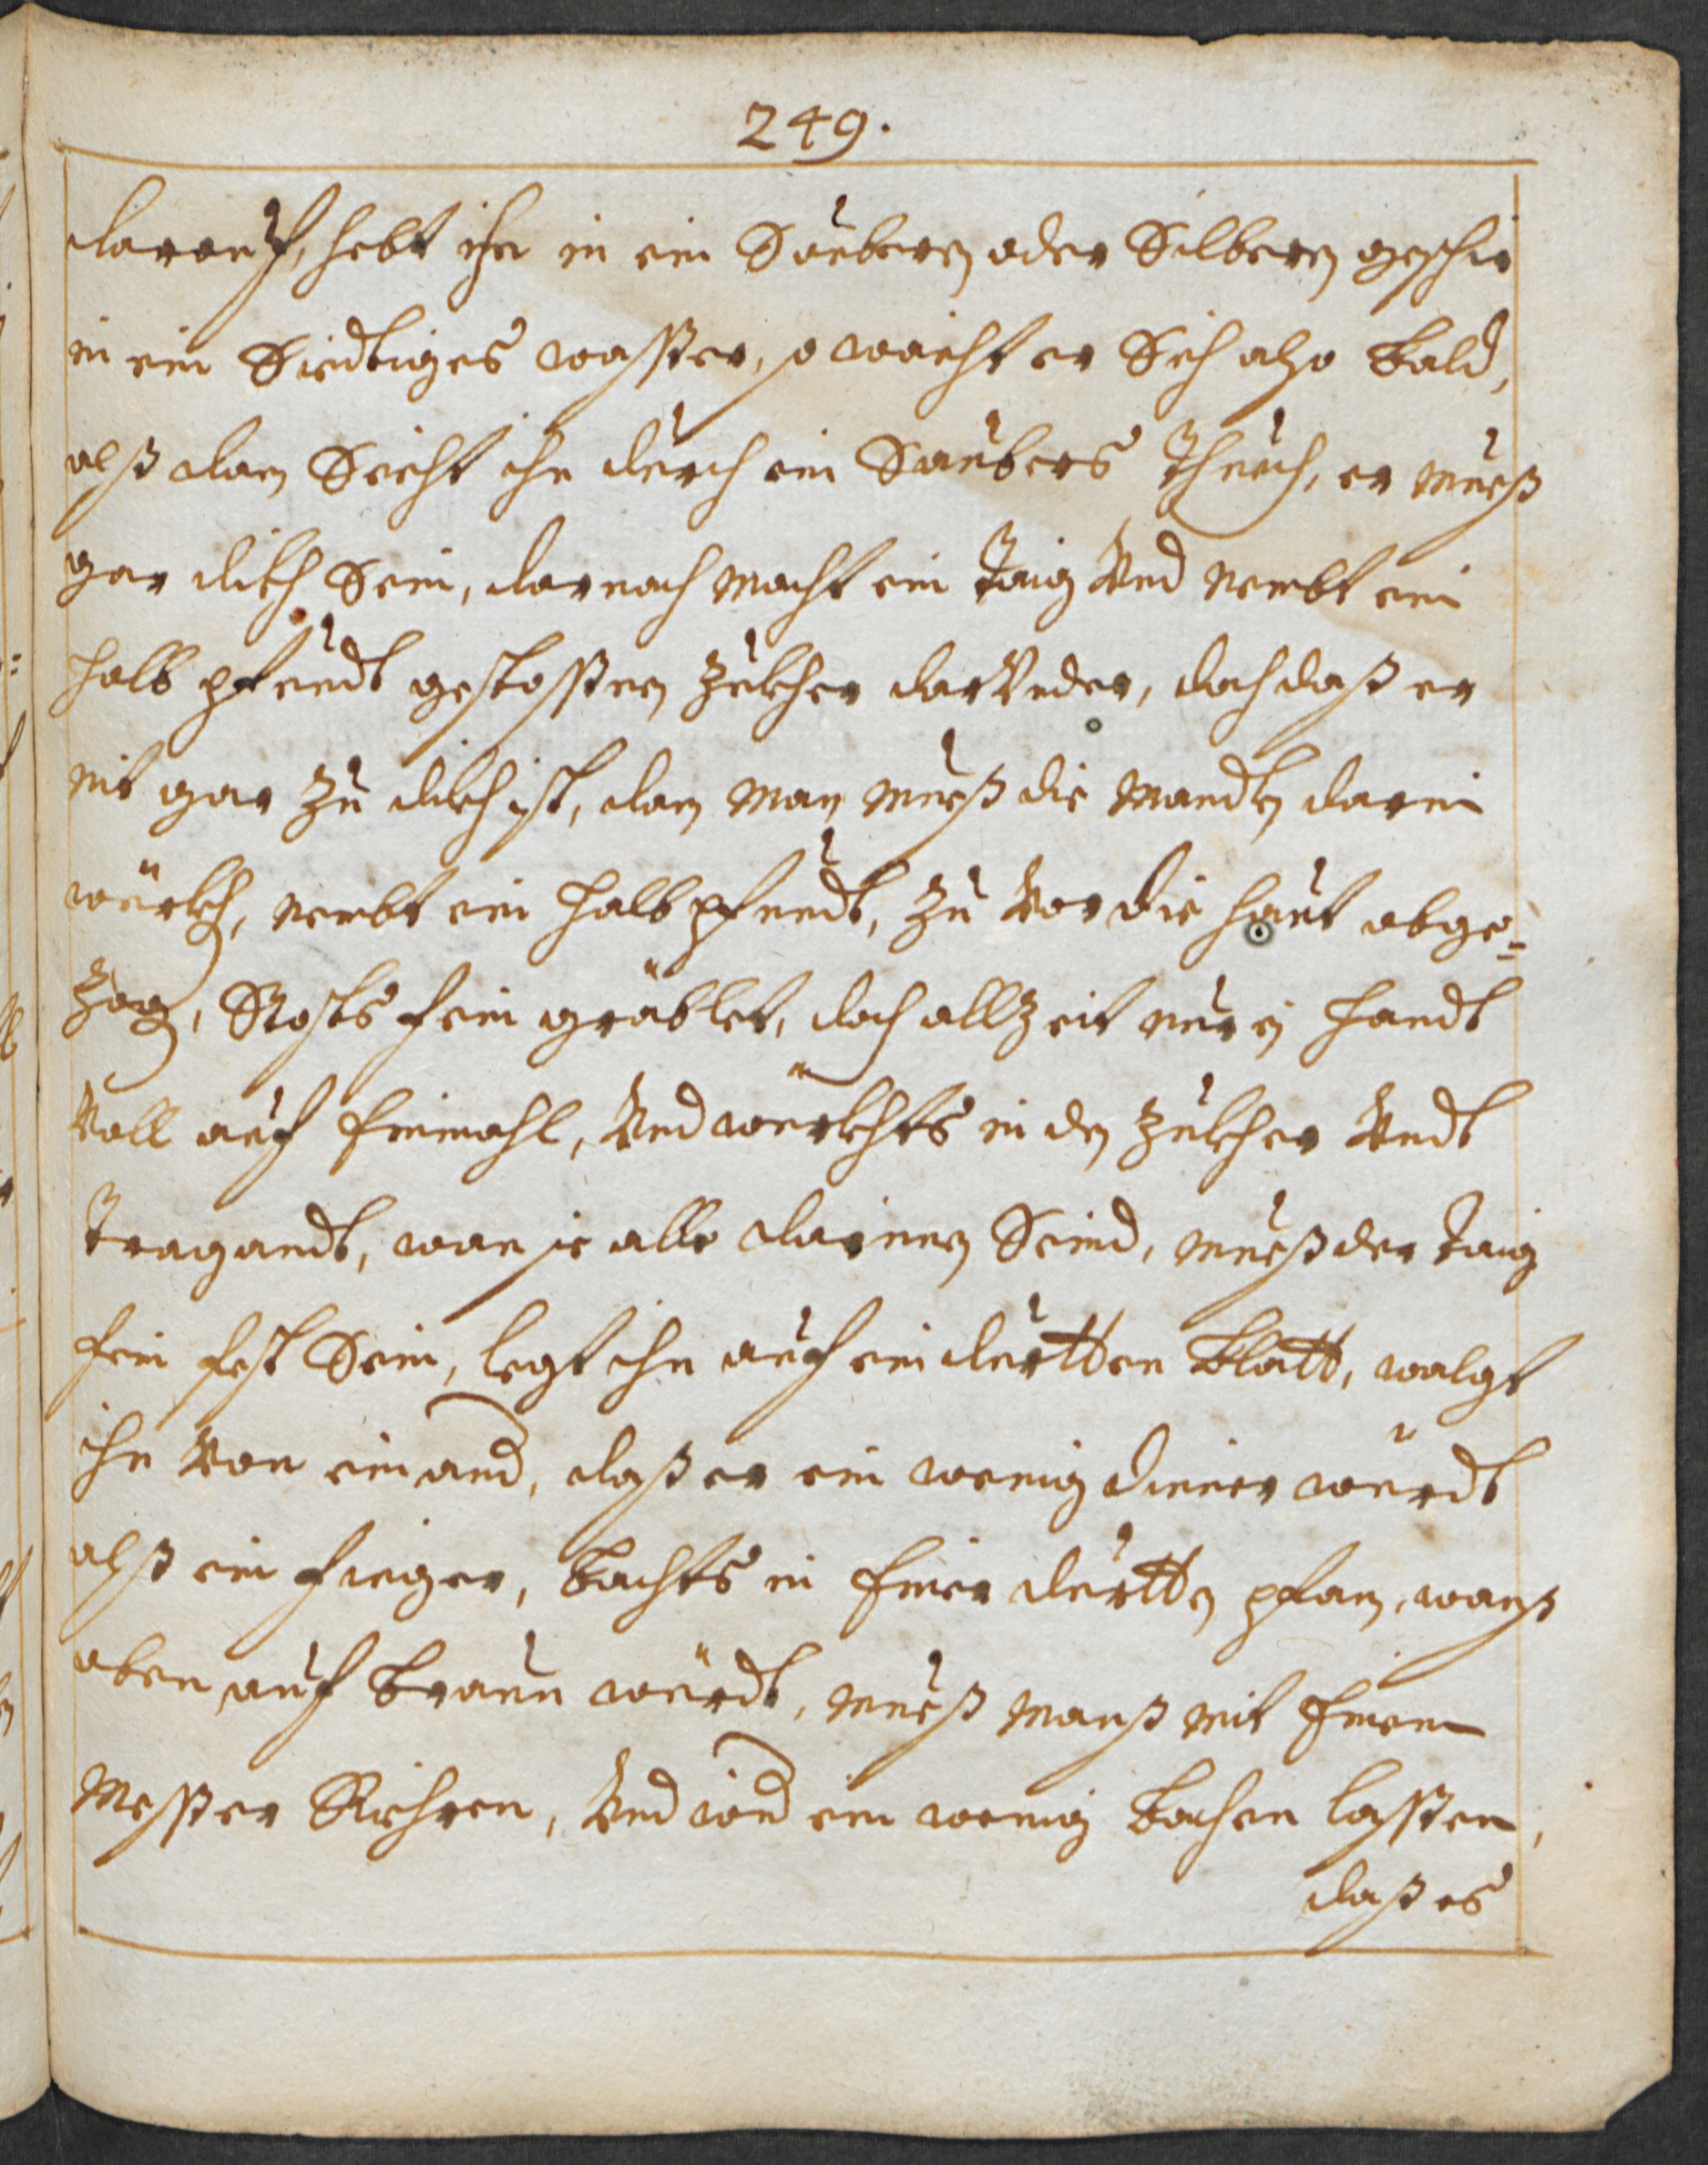 249.
darauf, hebt ihn in ein Saubern oder Silbern geschir
in ein Siedtiges wasser, so waicht er Sich also bald,
alß dan Seicht ihn durch ein Saubers Thuech, er mueß
gar dikh Sein, darnach macht ein Taig Vnd nembt ein
halb pfundt gestossnen Zukher darVnder, doch daß er
nit gar zu dikh ist, dan man mueß die Mandln darein
würkhen, nembt ein halb pfundt, zu Vor die haut abge=
zogn, Stosts fein gräblet, doch allzeit nur ein handt
Voll auf Einmahl, Vnd würkhts in den Zukher Vndt
Tragandt, wan sie alle darinen Seind, mueß der Taig
fein fest Sein, legt ihn auf ein durtten Blatt, walgt
ihn Von einand, daß er ein wenig diner würdt
alß ein finger, bachts in Einer durttn pfan, wanß
oben auf braun würdt, mueß manß mit Einem
Messer Riehren, Vnd wid ein wenig bachen lassen,
daß es